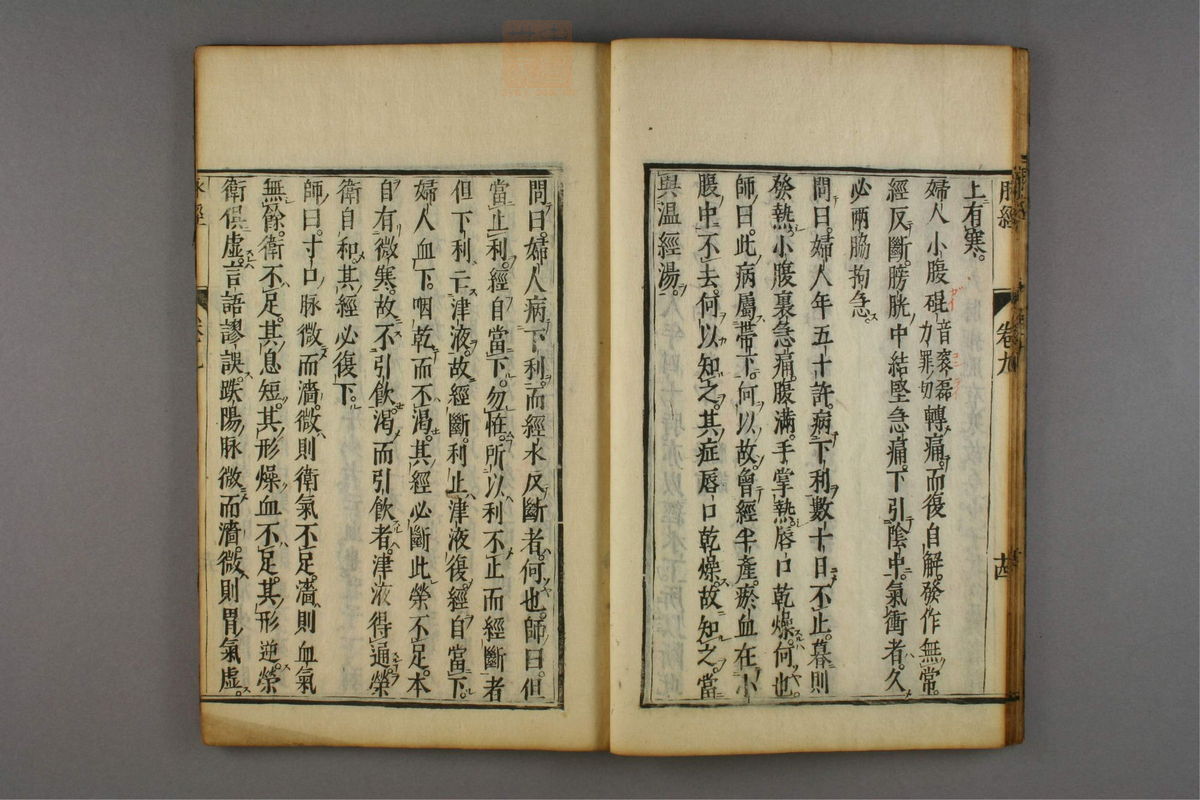 脉經
卷九
上有寒。
婦人小腹磥音衮磊力罪切轉痛。而復自解。發作無常。
經反斷。膀胱中結堅急痛。下引陰中。氣衝者。久
必兩脇拘急。
問曰。婦人年五十許。病下利。數十日不止。暮則
發熱。小腹裏急痛。腹滿。手掌熱。唇口乾燥。何也。
師曰。此病屬帶下。何以故。曾經半產。瘀血在小
腹中不去。何以知之。其症唇口乾燥。故知之。當
與温經湯。
問曰。婦人病下利。而經水反斷者。何也。師曰。但
當止利。經自當下。勿怪。所以利不止而經斷者
但下利亡津液。故經斷。利止津液復。經自當下。
婦人血下。咽乾而不渴。其經必斷。此榮不足。本
自有微寒。故不引飲。渴而引飲者。津液得通。榮
衛自和。其經必復下。
師曰。寸口脉微而濇。微則衛氣不足。濇則血氣
無餘。衛不足。其息短。其形燥。血不足。其形逆。榮
衛俱虛。言語謬誤。趺陽脉微而濇。微則胃氣虛。